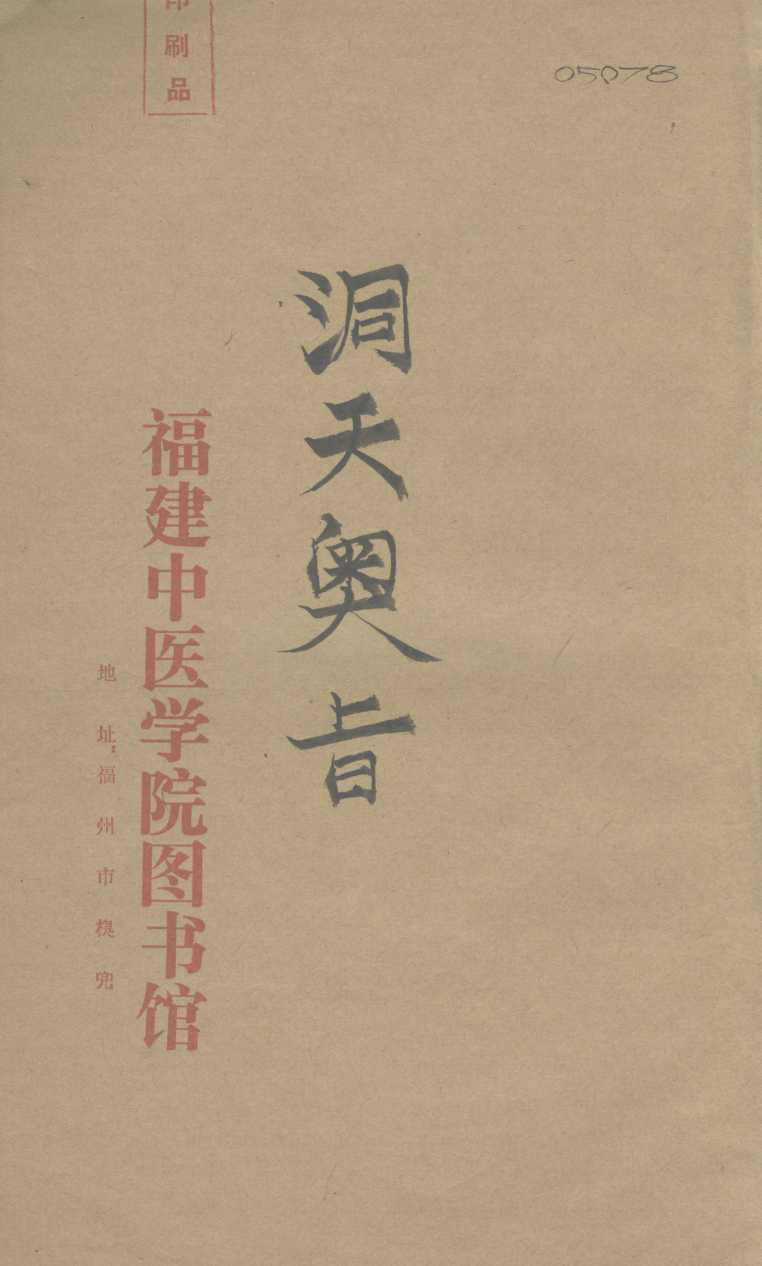 05078
洞天奥旨
印刷品
福建中医学院图书馆
地址：福州市樸兜